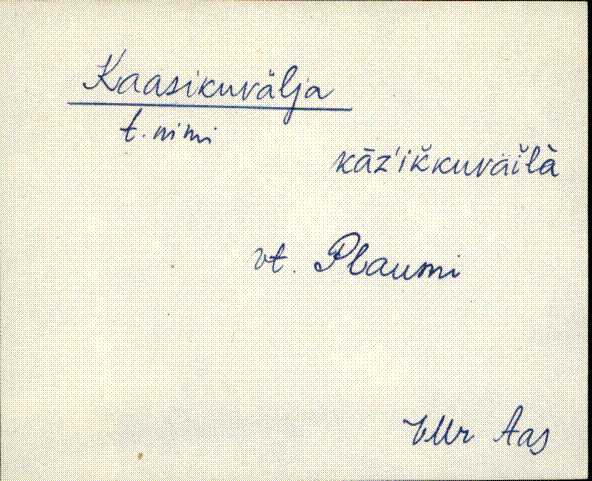 Kaasikuvälja
t. nimi
kāz'ik̆kuväi̮là
vt. Plaumi
VMr Aas